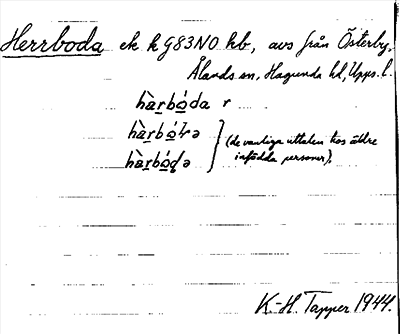 Herrboda ek k G83NO hb, avs från Österby,
Ålands sn, Hagunda hd, Upps. l.
hàṟbóda r
hàṟbó
hàṟbóḍə
(de vanliga uttalen hos äldre
infödda personer).
K-H. Tapper 1944.